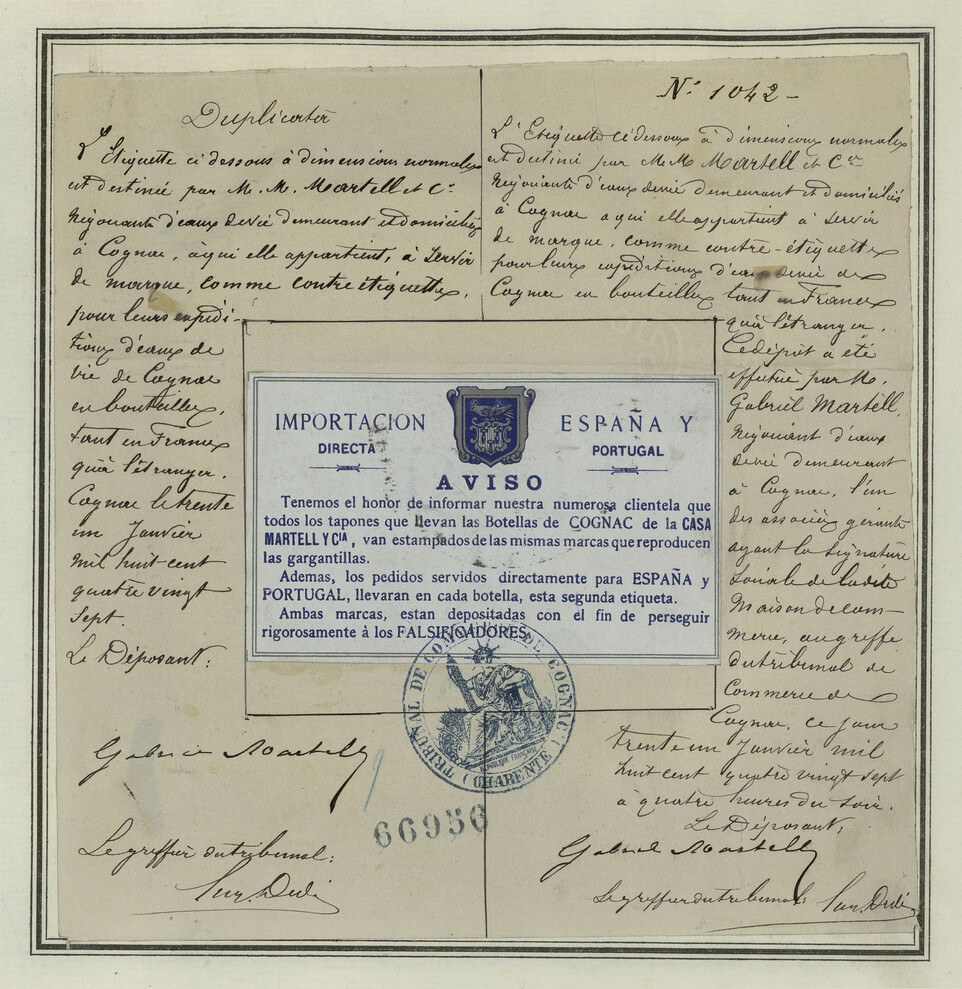 Duplicata
L'Etiquette ci dessous à dimensions normales
est destinée par M. M. Martell et Cie
Négociants d'eaux de vie demeurant et domiciliés
à Cognac, à qui elle appartient, à servir
de marque, comme contre étiquette,
pour leurs expédi-
tions d'eaux de
vie de Cognac
en bouteilles,
tant en France
qu'à l'étranger.
Cognac le trente
un Janvier
mil huit cent
quatre vingt
sept.
Le Déposant:
Gabriel Martell
Le greffier du tribunal:
N° 1042 -
L'Etiquette ci dessous à dimensions normales
est destinée par M M Martell et Cie
Négociants d'eaux de vie demeurant et domiciliés
à Cognac a qui elle appartient à servir
de marque, comme contre-étiquette
pour leurs expéditions d'eaux de vie de
Cognac en bouteilles tant en France
qu'à l'étranger.
Ce dépôt a été
effectué par M.
Gabriel Martell,
Négociant d'eaux
de vie demeurant
à Cognac, l'un
des associés gérants
ayant la signature
sociale de la dite
Maison de com-
merce, au greffe
du tribunal de
Commerce de
Cognac, ce jour
trente un Janvier mil
huit cent quatre vingt sept
à quatre heures du soir.
Le Déposant,
Gabriel Martell
Le greffier du tribunal:
IMPORTACION
DIRECTA
ESPAÑA Y
PORTUGAL
AVISO
Tenemos el honor de informar nuestra numerosa clientela que
todos los tapones que llevan las Botellas de COGNAC de la CASA
MARTELL Y CIA, van estampados de las mismas marcas que reproducen
las gargantillas.
Ademas, los pedidos servidos directamente para ESPAÑA y
PORTUGAL, llevaran en cada botella, esta segunda etiqueta.
Ambas marcas, estan depositadas con el fin de perseguir
rigorosamente à los FALSIFICADORES.
TRIBUNAL DE COMMERCE DE COGNAC
(CHARENTE)
REPUBLIQUE FRANÇAISE
66956